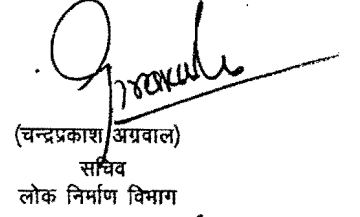 (चन्द्रप्रकाश अग्रवाल)
सचिव
लोक निर्माण विभाग